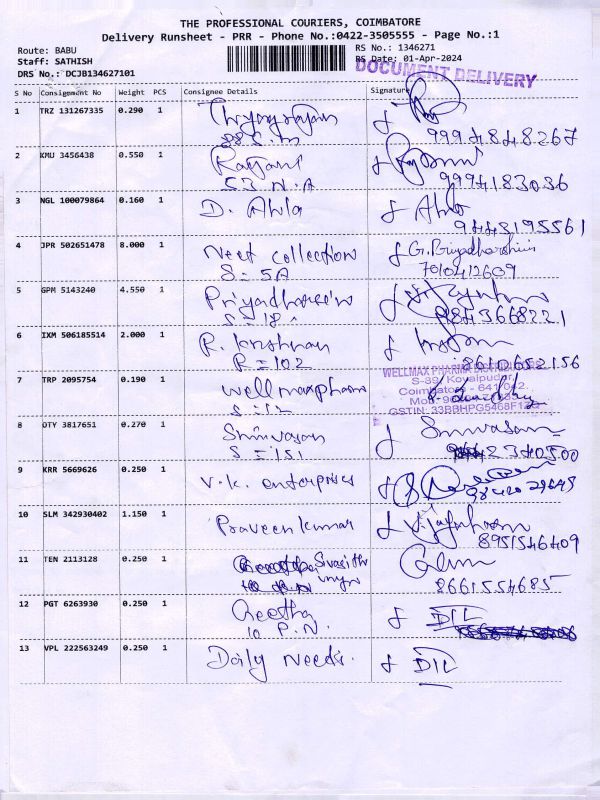 THE PROFESSIONAL COURIERS, COIMBATORE
Delivery Runsheet - PRR - Phone No.:0422-3505555 - Page No.:1
Route: BABU
Staff: SATHISH
DRS No.: DCJB134627101
RS No.: 1346271
RS Date: 01-Apr-2024
DOCUMENT DELIVERY
S No Consignment No Weight PCS Consignee Details Signature
1 TRZ 131267335 0.290 1
99948 48267
2 KMU 3456438 0.550 1 Rajjani
53 N.A
9994183036
3 NGL 100079864 0.160 1 D. Ahla
9443195561
4 JPR 502651478 8.000 1 Next collection G. Priyadharshini
S = 5A 7010412609
5 GPM 5143240 4.550 1
S = 18
9843668221
6 IXM 506185514 2.000 1 R. Krishnan
R = 102 8610652156
7 TRP 2095754 0.190 1 Wellmaxpharm
S = 12
WELLMAX PHARMA
S-89, Kovaipudur,
Coimbatore - 641 042.
GSTIN: 33BBHPG5468F1ZQ
8 OTY 3817651 0.270 1 Srinivasan Srinivasan
S = 151 2340500
9 KRR 5669626 0.250 1 V.K. enterprises
10 SLM 342930402 1.150 1 Praveen kumar
8951546409
11 TEN 2113128 0.250 1
8661554685
12 PGT 6263930 0.250 1 Geetha DIL
10 P.N.
13 VPL 222563249 0.250 1 Daily Needs. DIL